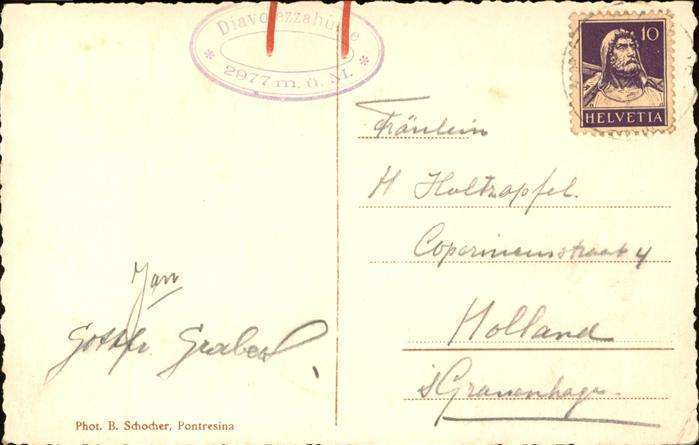 Diavolezzahütte
* 2977 m. ü. M. *
10
HELVETIA
Fräulein
H Holtzapfel.
Copernicusstraat 4
Holland
s'Gravenhage.
Gottfr.
Phot. B. Schocher, Pontresina